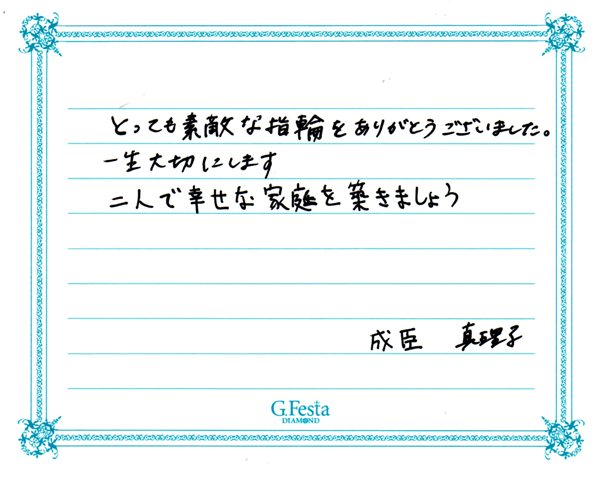 とっても素敵な指輪をありがとうございました。
一生大切にします
二人で幸せな家庭を築きましょう
成臣 真理子
G.Festa
DIAMOND